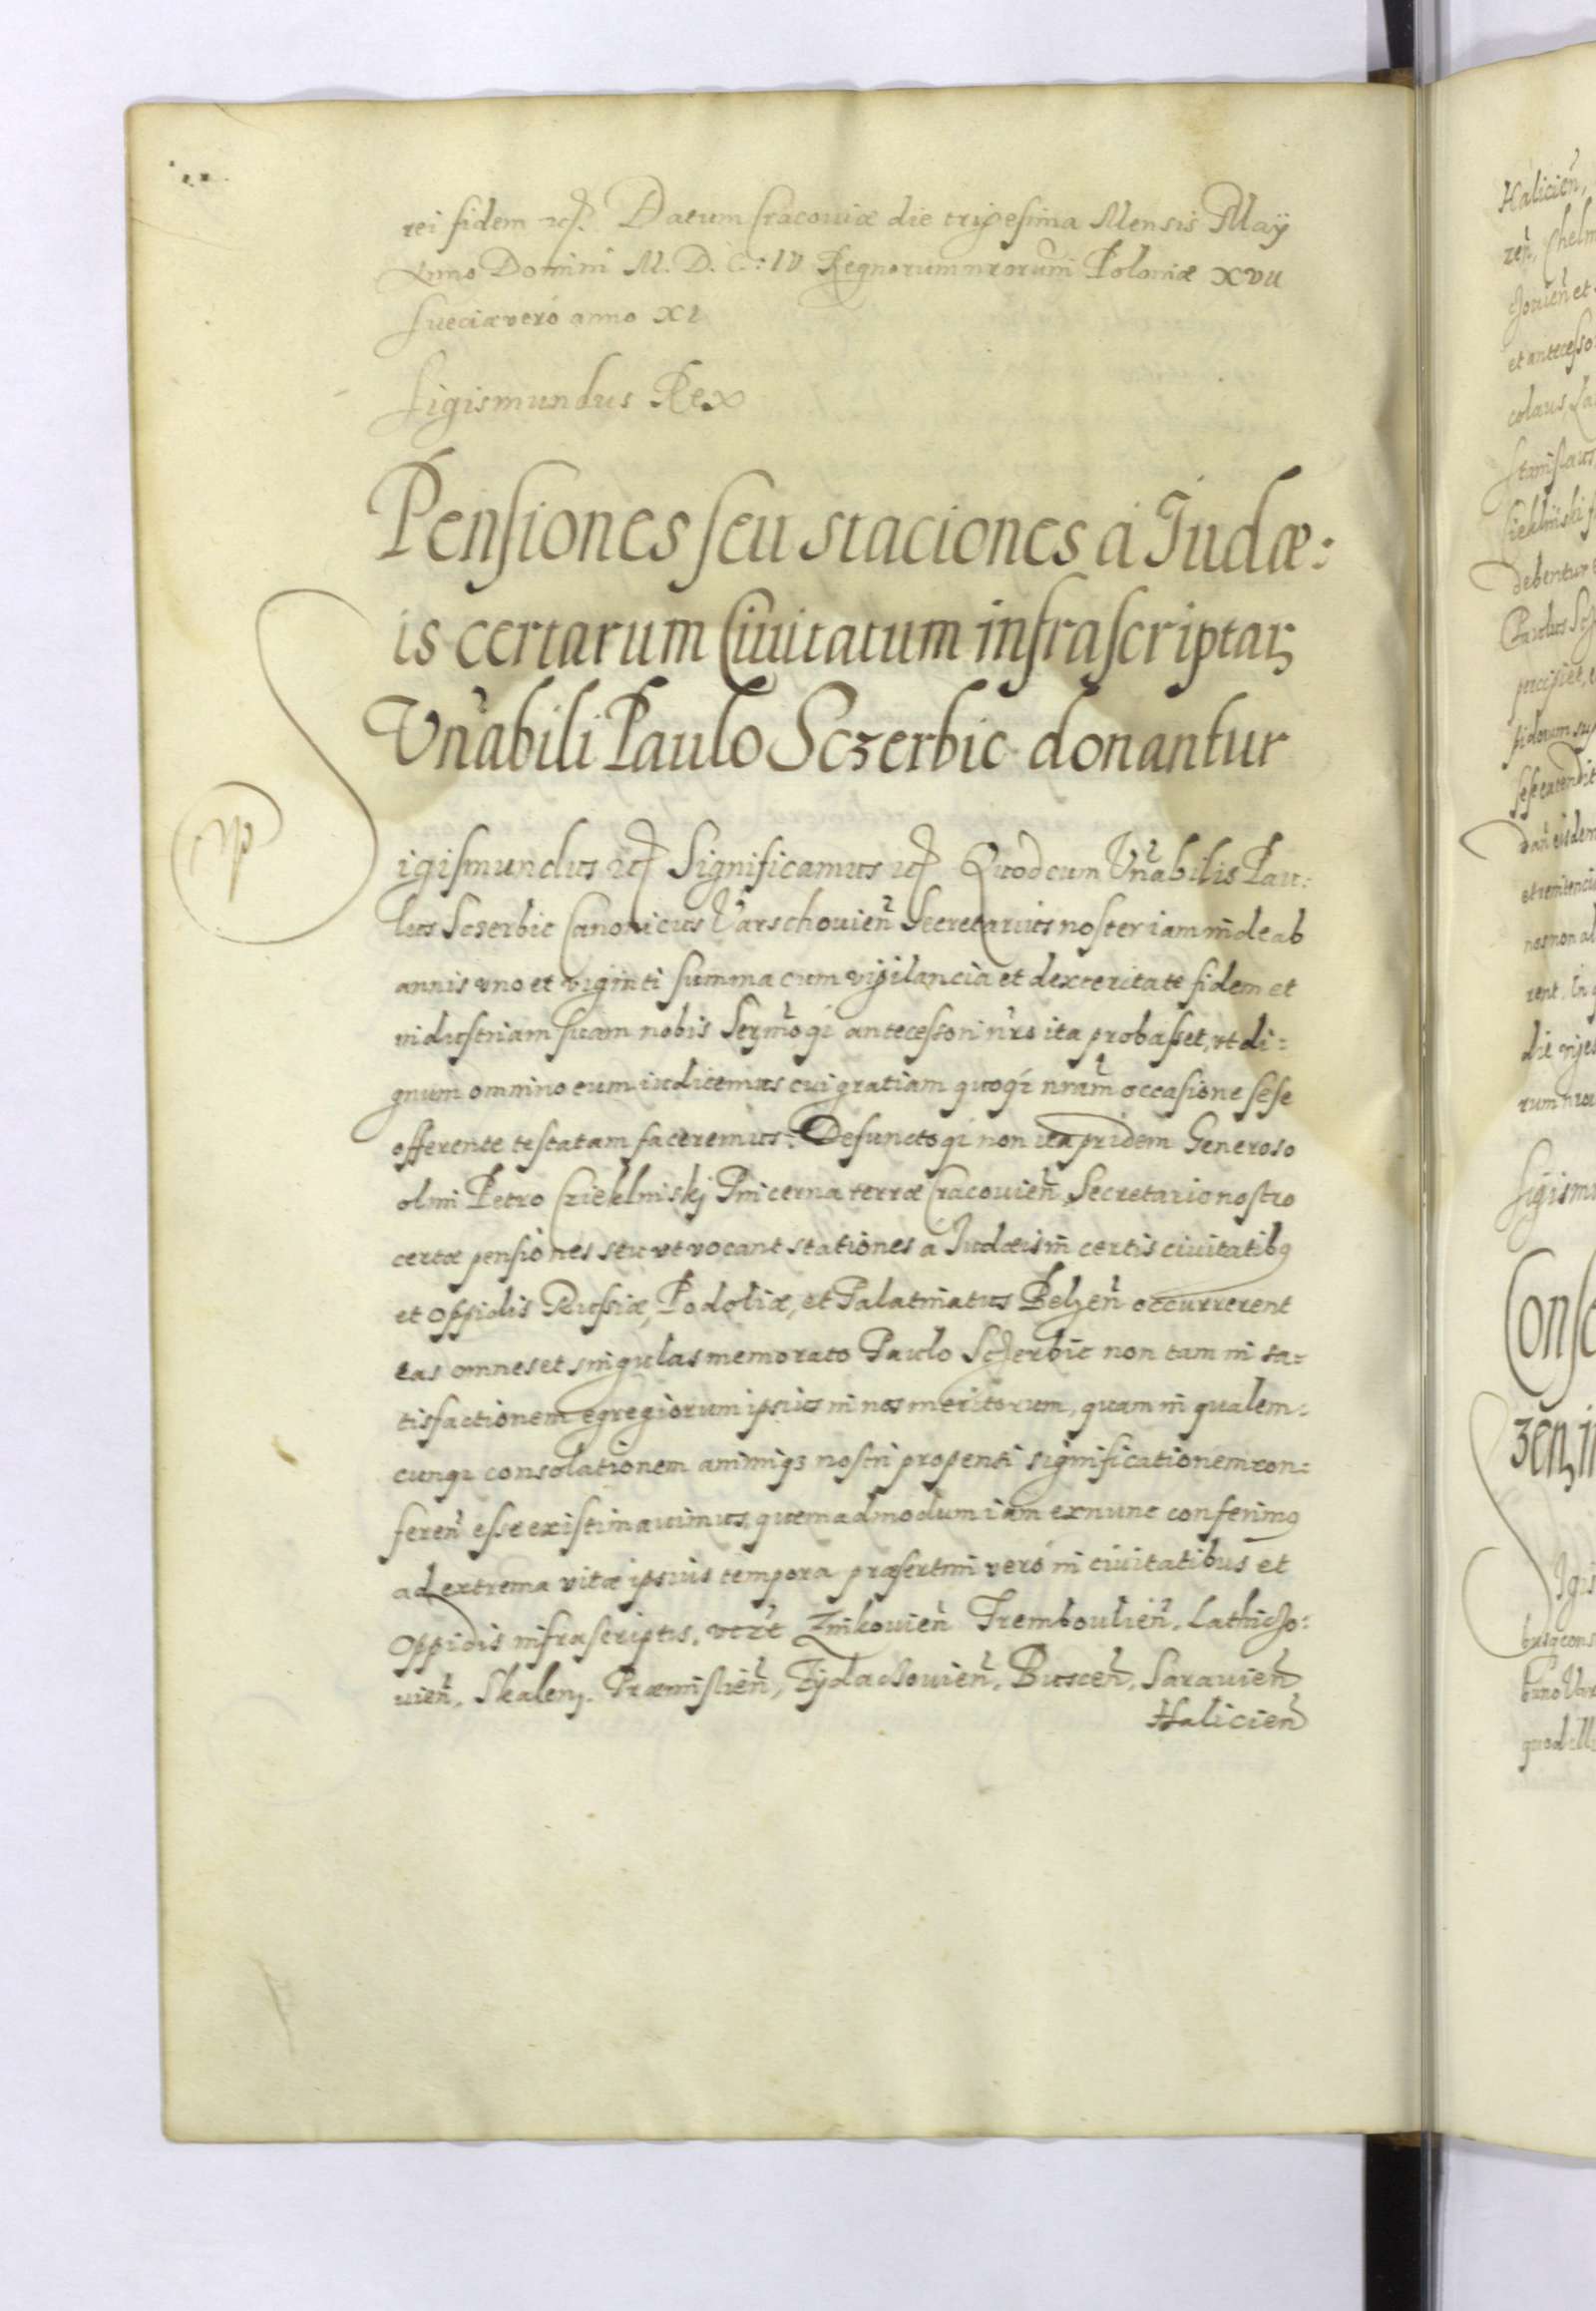 rei fidem etc. Datum Cracoviæ die trigesima Mensis Maÿ
Anno Domini M. D. C: IV Regnorum nrorum Poloniæ XVII
Sueciæ vero anno XI
Sigismundus Rex
Pensiones seu staciones a Judæ:
is certarum Civitatum infrascriptar
Vnabili Paulo Sczerbic donantur
Sigismundus etc Significamus etc Quod cum Vnabilis Pau:
lus Sczerbic Canonicus Varschovien Secretarius noster iam inde ab
annis vno et viginti summa cum vigilancia et dexteritate fidem et
industriam suam nobis Sermoqi antecessori nro ita probasset, vt di:
gnum omnino eum iudicemus cui gratiam quoqi nram occasione sese
offerente testatam faceremus: Defunctoqi non ita pridem Generoso
olim Petro Cziekliniskj Pincerna terræ Cracovien Secretario nostro
certæ pensiones seu vt vocant stationes a Judæis in certis civitatibq
et oppidis Russiæ, Podoliæ, et Palatinatus Belzen occurrerent
eas omnes et singulas memorato Paulo Sczerbic non tam in sa=
tisfactionem egregiorum ipsius in nos meritorum, quam in qualem:
cunqi consolationem animiqz nostri propensi significationem con:
feren esse existimavimus, quemadmodum iam ex nunc conferimq
ad extrema vitæ ipsius tempora præsertim vero in civitatibus et
oppidis infrascriptis, Zinkovien Tremboulien, Latticzo:
vien, Skalen, Præmislien, Zÿdaczovien, Buscen, Saravien
Halicien
Halicien,
Chelm
et antecesso
colaus
Stanislaus
debentur
Paulus
rent. In
Sigism
Cons